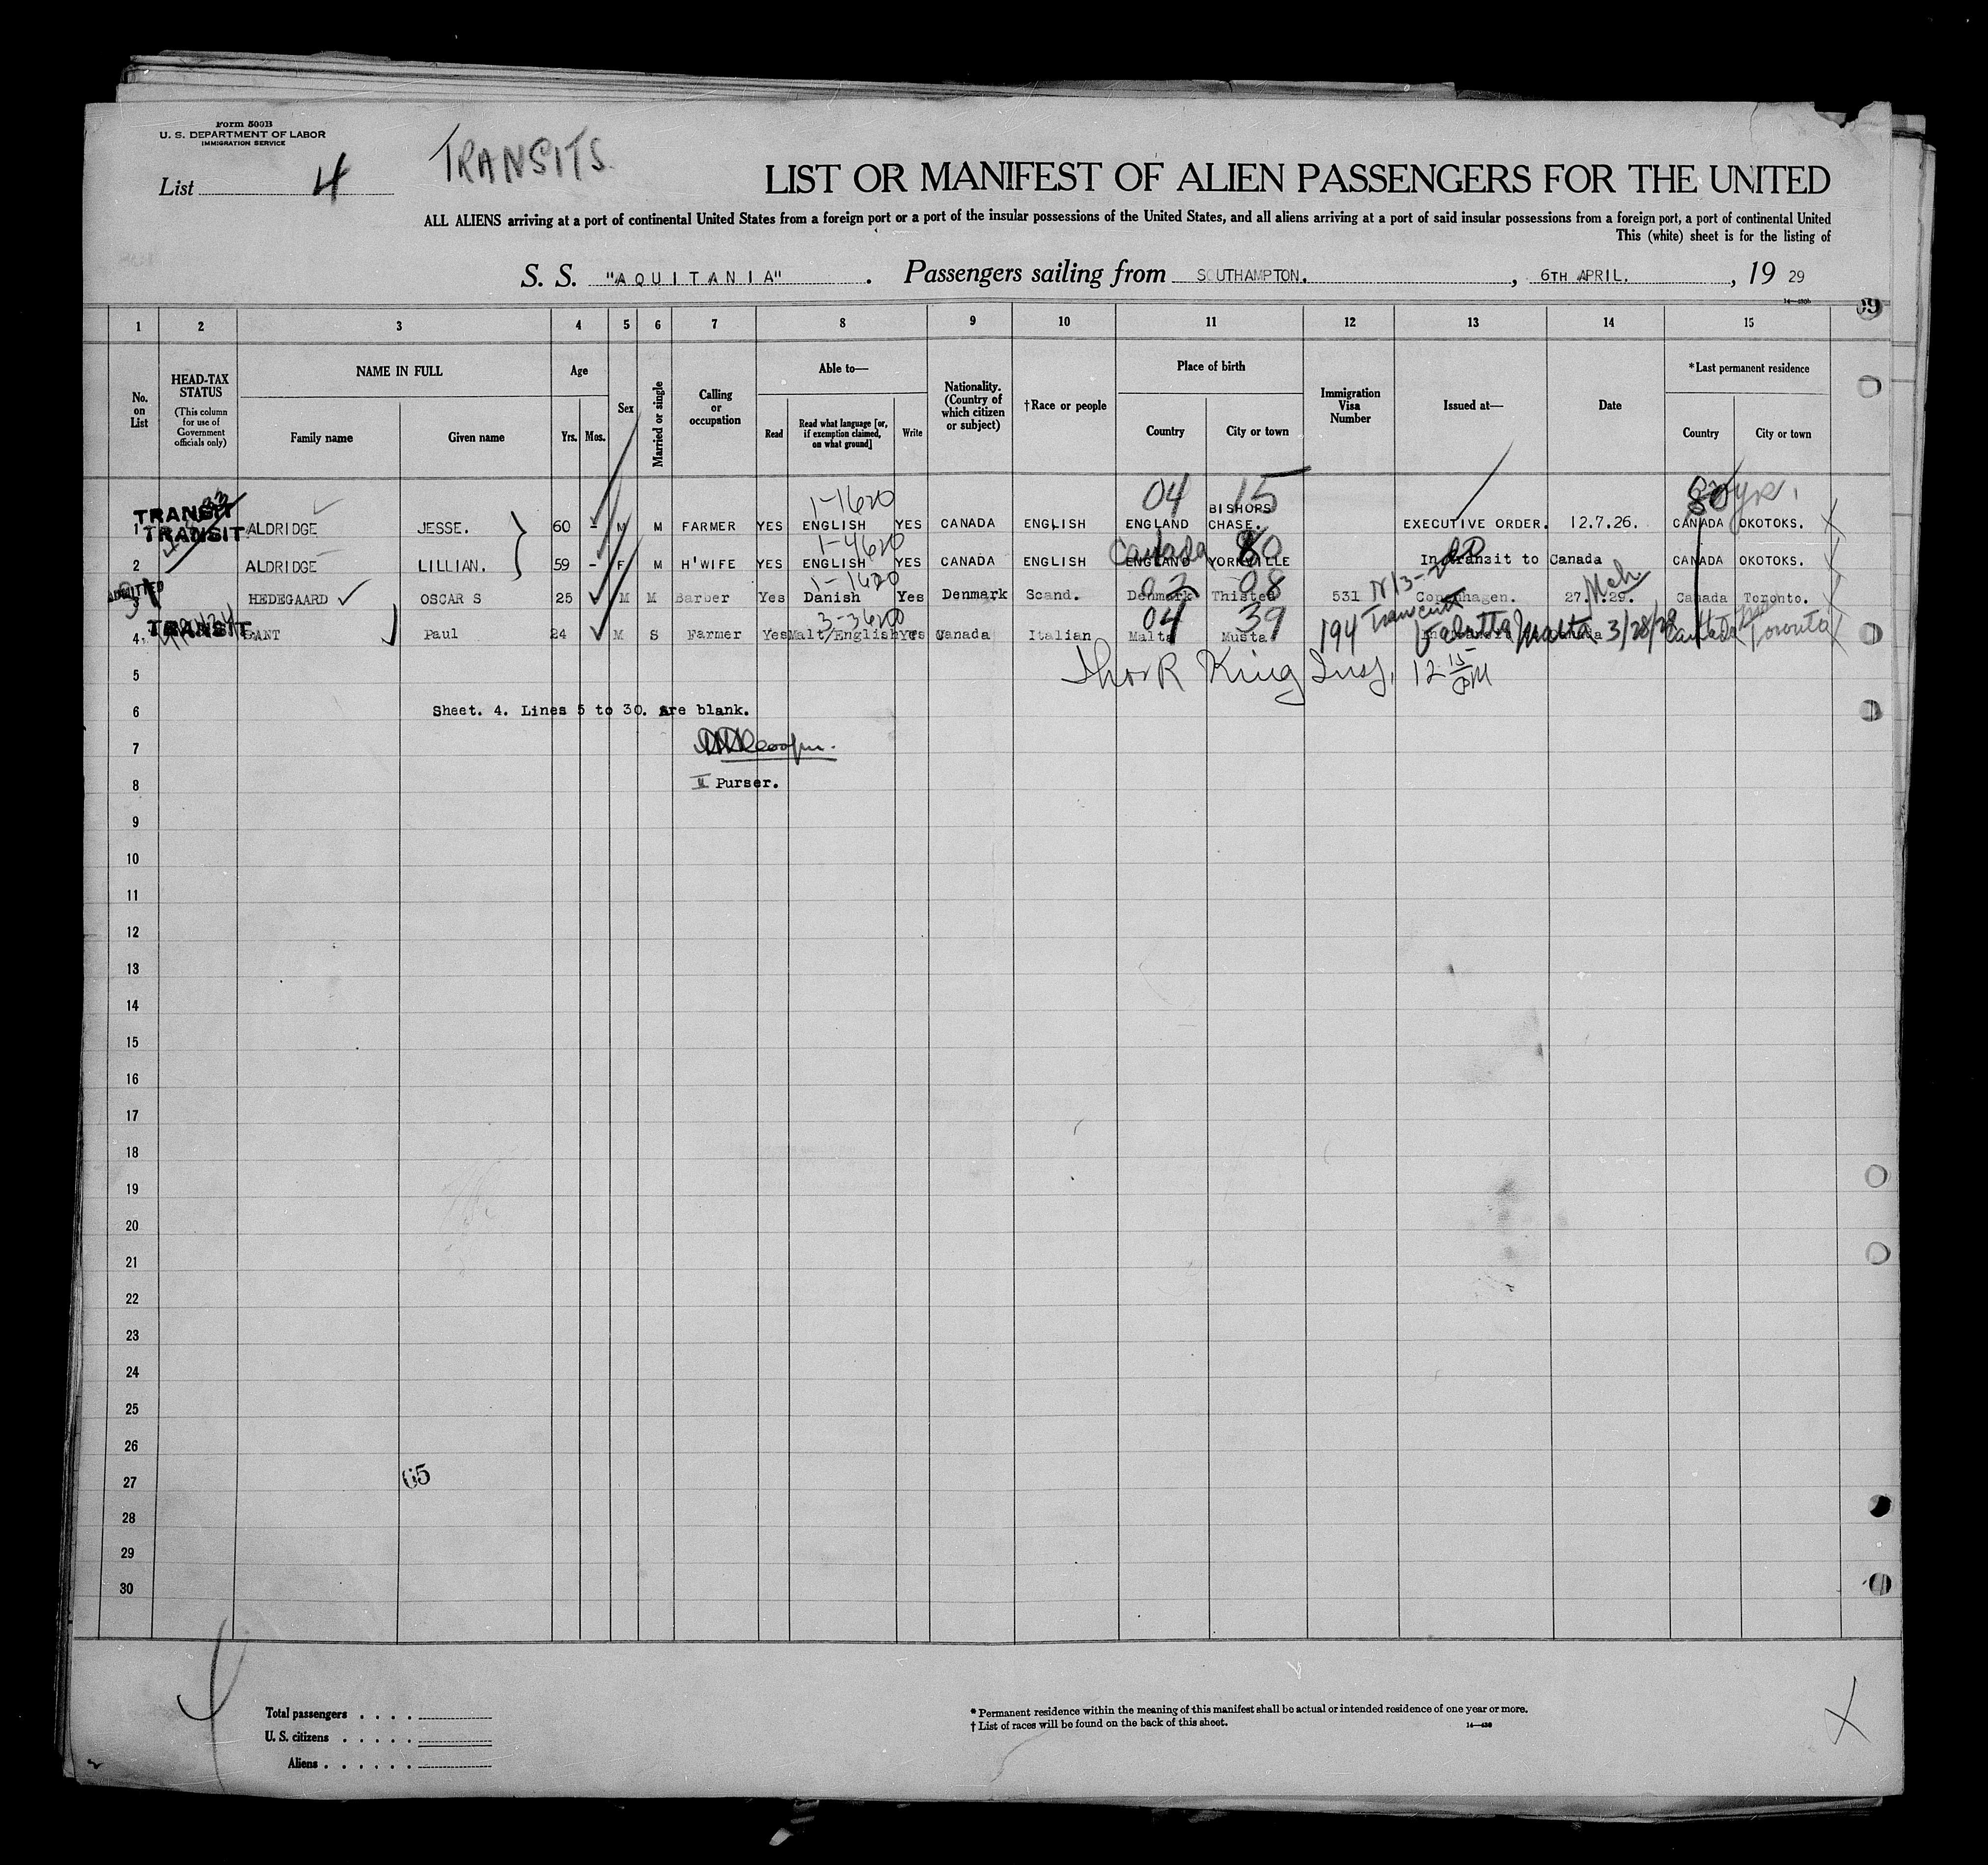 Form 500B
U. S. DEPARTMENT OF LABOR
IMMIGRATION SERVICE
List 4
TRANSITS.
LIST OR MANIFEST OF ALIEN PASSENGERS FOR THE UNITED
ALL ALIENS arriving at a port of continental United States from a foreign port or a port of the insular possessions of the United States, and all aliens arriving at a port of said insular possessions from a foreign port, a port of continental United
This (white) sheet is for the listing of
S. S. "AQUITANIA". Passengers sailing from SOUTHAMPTON., 6TH APRIL., 19 29
1 2 3 4 5 6 7 8 9 10 11 12 13 14 15
No. on List
HEAD-TAX STATUS (This column for use of Government officials only)
NAME IN FULL
Family name Given name
Age
Yrs. Mos.
Sex
Married or single
Calling or occupation
Able to—
Read Read what language [or, if exemption claimed, on what ground] Write
Nationality. (Country of which citizen or subject)
†Race or people
Place of birth
Country City or town
Immigration Visa Number
Issued at—
Date
*Last permanent residence
Country City or town
TRANSIT 1-1620 04 15 80 yr.
1 TRANSIT ALDRIDGE JESSE. 60 - M M FARMER YES ENGLISH YES CANADA ENGLISH ENGLAND BISHOPS CHASE. EXECUTIVE ORDER. 12.7.26. CANADA OKOTOKS.
1-4620 Canada 80
2 ALDRIDGE LILLIAN. 59 - F M H'WIFE YES ENGLISH YES CANADA ENGLISH ENGLAND YORKVILLE In transit to Canada CANADA OKOTOKS.
1-1620 02 08
ADMITTED
3 HEDEGAARD OSCAR S 25 M M Barber Yes Danish Yes Denmark Scand. Denmark Thisted 531 Copenhagen. 27. .29. Canada Toronto.
3-3620 04 39
4. TRANSIT. Paul 24 M S Farmer Yes Malt/English Yes Canada Italian Malta Musta 194 Valetta Malta 3/28/29 Canada Toronto
5 Thos R King Insp. 12 15 PM
6 Sheet. 4. Lines 5 to 30. are blank.
7
8 II Purser.
9
10
11
12
13
14
15
16
17
18
19
20
21
22
23
24
25
26
27 65
28
29
30
Total passengers . . . .
U. S. citizens . . . . .
Aliens . . . . . .
* Permanent residence within the meaning of this manifest shall be actual or intended residence of one year or more.
† List of races will be found on the back of this sheet.
14—430